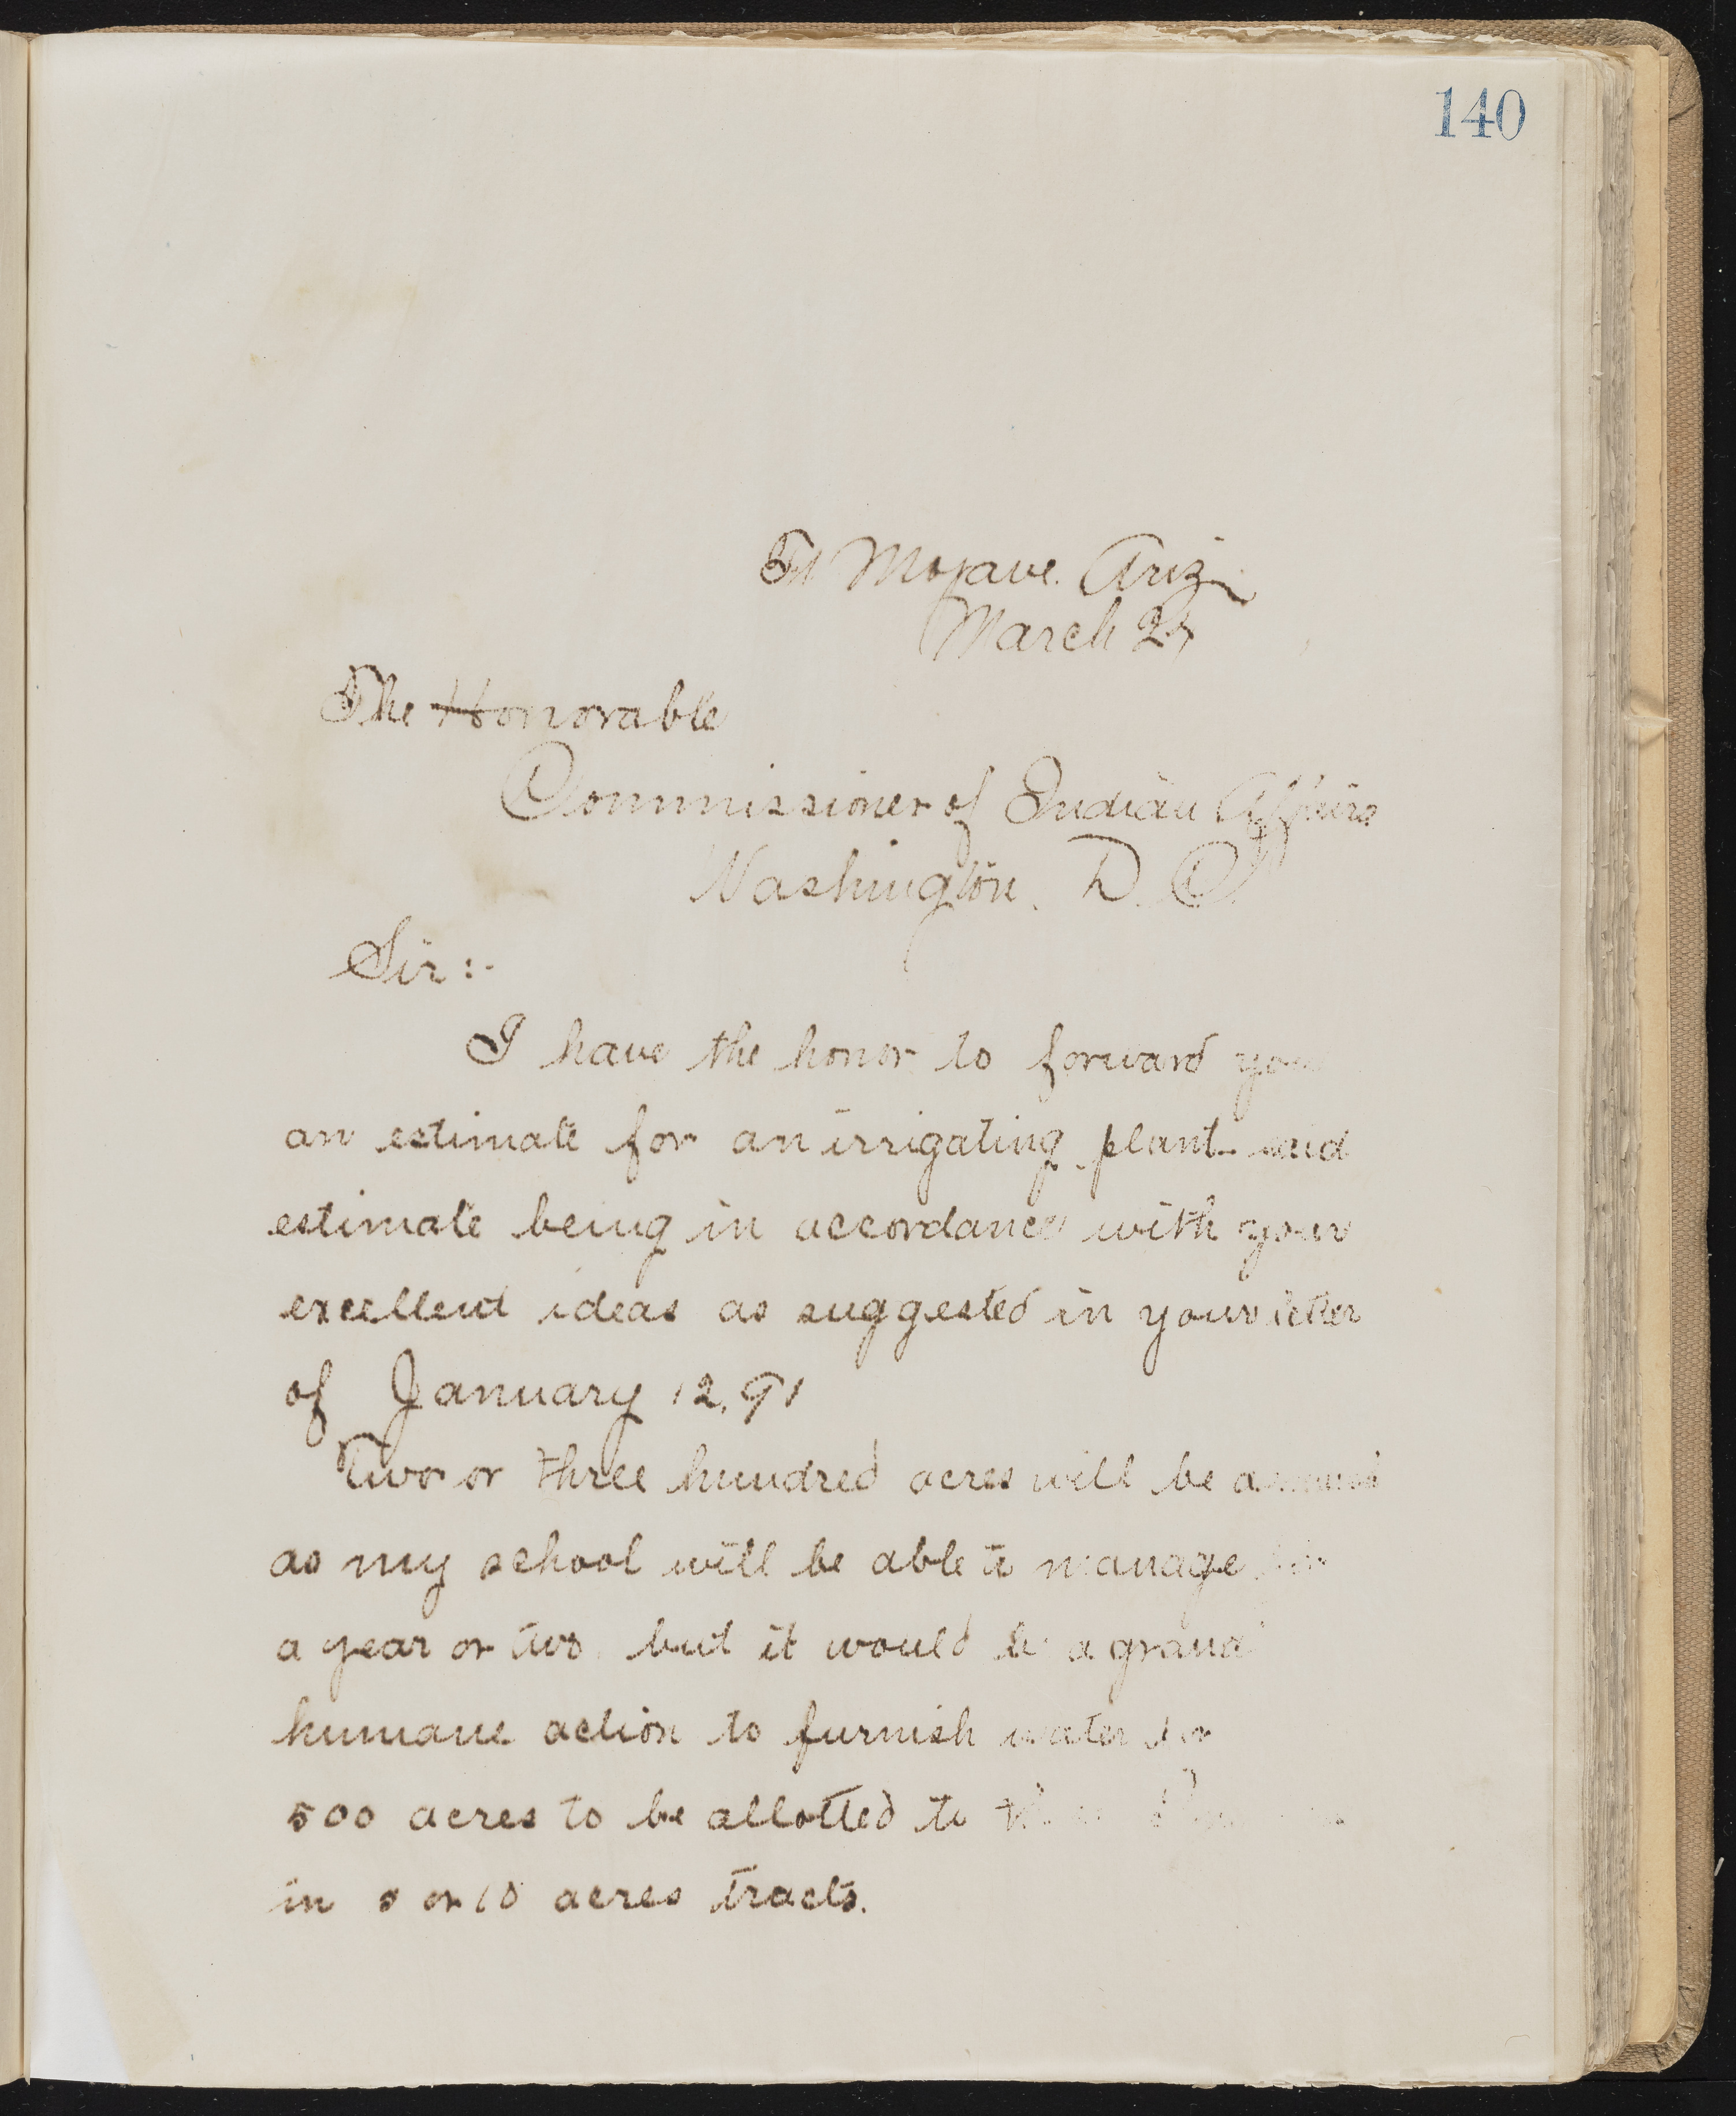 140
Ft Mojave. Ariz
March 25
The Honorable
Commissioner of Indian Affairs
Washington. D. C.
Sir:-
I have the honor to forward you
an estimate for an irrigating plant said
estimate being in accordance with your
excellent ideas as suggested in your letter
of January 12, 91
Two or three hundred acres will be
as my school will be able to manage for
a year or two, but it would be a grand
humane action to furnish water for
500 acres to be allotted to
in or 10 acres tracts.